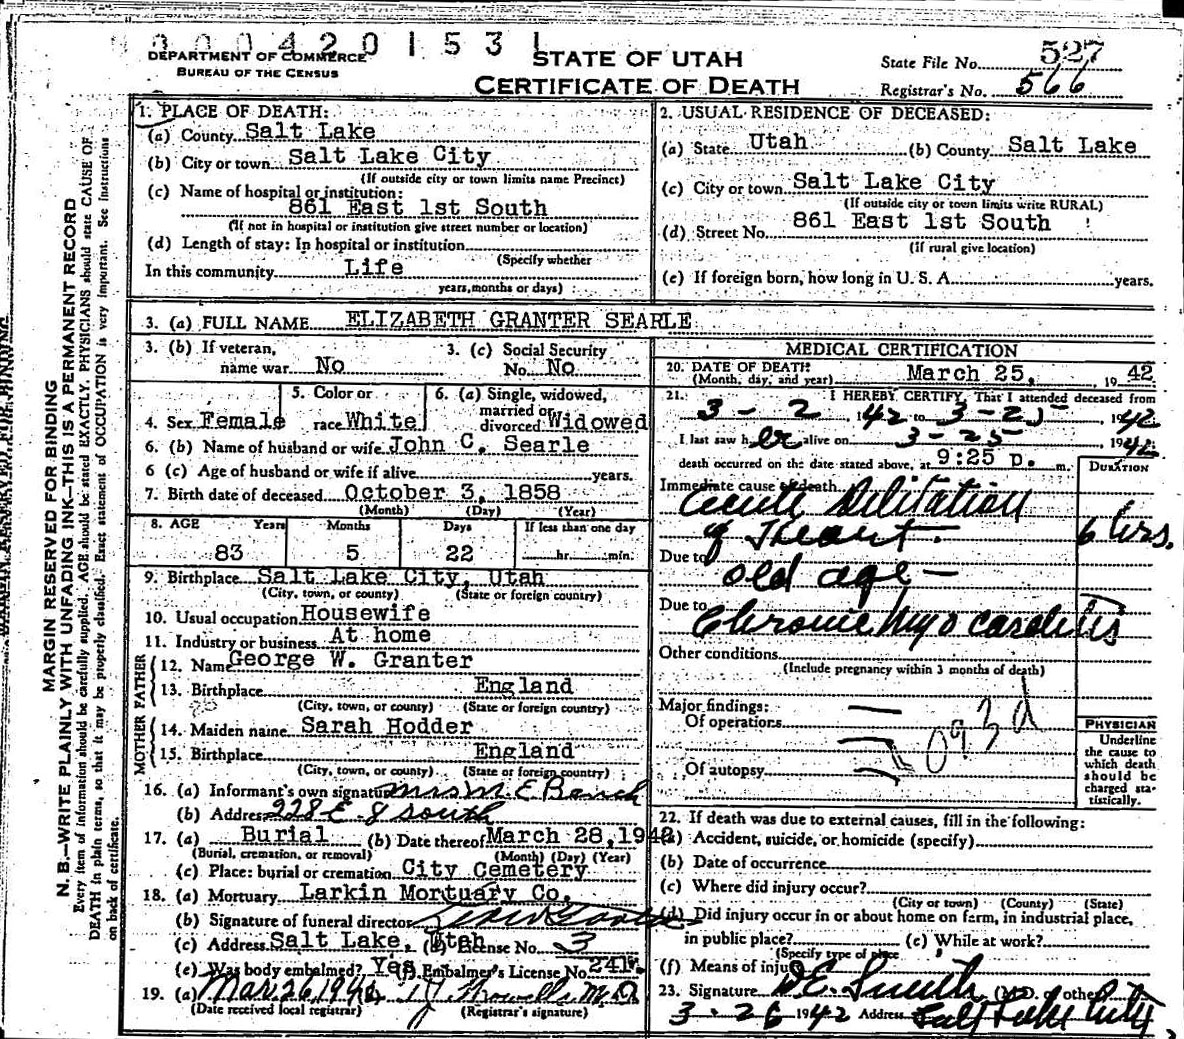 0004201531
DEPARTMENT OF COMMERCE
BUREAU OF THE CENSUS
STATE OF UTAH
CERTIFICATE OF DEATH
State File No. 527
Registrar's No. 566
MARGIN RESERVED FOR BINDING
N. B.—WRITE PLAINLY WITH UNFADING INK—THIS IS A PERMANENT RECORD
Every item of information should be carefully supplied. AGE should be stated EXACTLY. PHYSICIANS should state CAUSE OF
DEATH in plain terms, so that it may be properly classified. Exact statement of OCCUPATION is very important. See instructions
on back of certificate.
1. PLACE OF DEATH:
(a) County Salt Lake
(b) City or town Salt Lake City
(If outside city or town limits name Precinct)
(c) Name of hospital or institution:
861 East 1st South
(If not in hospital or institution give street number or location)
(d) Length of stay: In hospital or institution
(Specify whether
In this community Life
years, months or days)
2. USUAL RESIDENCE OF DECEASED:
(a) State Utah (b) County Salt Lake
(c) City or town Salt Lake City
(If outside city or town limits write RURAL)
(d) Street No. 861 East 1st South
(If rural give location)
(e) If foreign born, how long in U. S. A. years.
3. (a) FULL NAME ELIZABETH GRANTER SEARLE
3. (b) If veteran,
name war No
3. (c) Social Security
No. No
4. Sex Female
5. Color or
race White
6. (a) Single, widowed,
married or
divorced Widowed
6. (b) Name of husband or wife John C. Searle
6 (c) Age of husband or wife if alive years.
7. Birth date of deceased October 3, 1858
(Month) (Day) (Year)
8. AGE Years Months Days If less than one day
83 5 22 hr. min.
9. Birthplace Salt Lake City, Utah
(City, town, or county) (State or foreign country)
10. Usual occupation Housewife
11. Industry or business At home
FATHER
12. Name George W. Granter
13. Birthplace England
(City, town, or county) (State or foreign country)
MOTHER
14. Maiden name Sarah Hodder
15. Birthplace England
(City, town, or county) (State or foreign country)
16. (a) Informant's own signature Mrs M. E
(b) Address 228 E. 8 South
17. (a) Burial (b) Date thereof March 28, 1942
(Burial, cremation, or removal) (Month) (Day) (Year)
(c) Place: burial or cremation City Cemetery
18. (a) Mortuary Larkin Mortuary Co.
(b) Signature of funeral director
(c) Address Salt Lake, Utah (d) License No. 3
(e) Was body embalmed? Yes (f) Embalmer's License No. 241
19. (a) Mar. 26, 1942 (b) M.D.
(Date received local registrar) (Registrar's signature)
MEDICAL CERTIFICATION
20. DATE OF DEATH
(Month, day, and year) March 25, 1942
21. I HEREBY CERTIFY, That I attended deceased from
3 - 2, 1942 to 3-25, 1942
I last saw her alive on 3-25 1942
death occurred on the date stated above, at 9:25 p. m.
DURATION
Immediate cause of death
Acute Dilitation
of Heart. 6 hrs.
Due to old age —
Due to Chronic Myocarditis
Other conditions
(Include pregnancy within 3 months of death)
Major findings:
Of operations
Of autopsy
093d
PHYSICIAN
Underline
the cause to
which death
should be
charged sta-
tistically.
22. If death was due to external causes, fill in the following:
(a) Accident, suicide, or homicide (specify)
(b) Date of occurrence
(c) Where did injury occur?
(City or town) (County) (State)
(d) Did injury occur in or about home on farm, in industrial place,
in public place? (e) While at work?
(Specify type of place)
(f) Means of injury
23. Signature D.C. Smith (M.D. or other)
3-26 1942 Address Salt Lake City